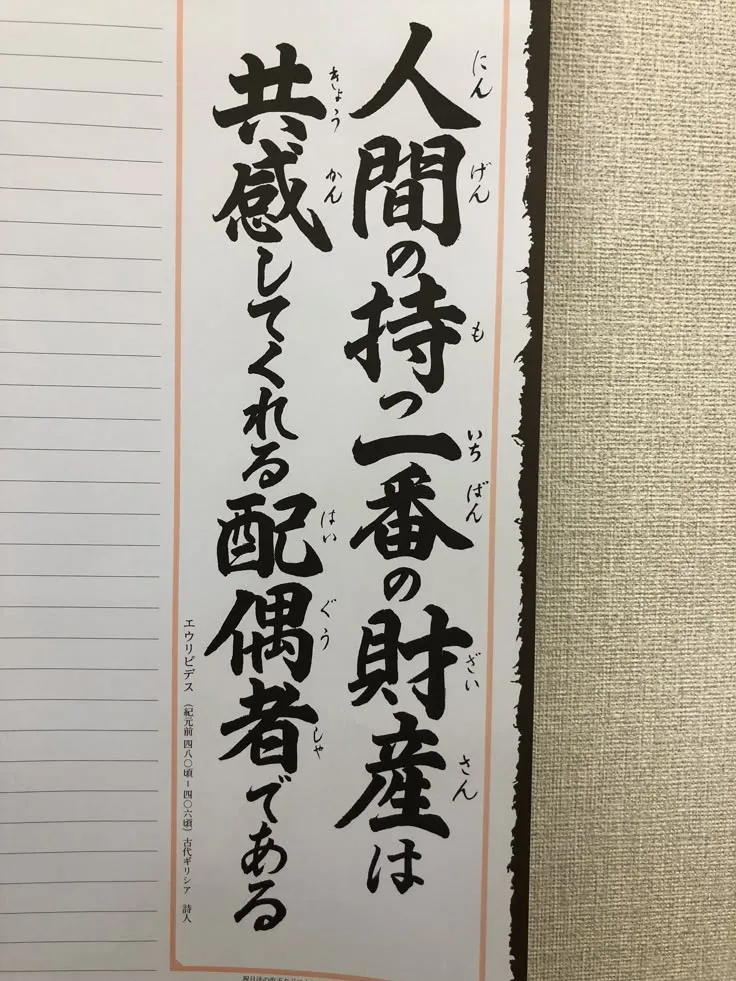 人間の持つ一番の財産は
にんげん も いちばん ざいさん
共感してくれる配偶者である
きょうかん はいぐうしゃ
エウリピデス（紀元前四八〇頃－四〇六頃）古代ギリシア 詩人